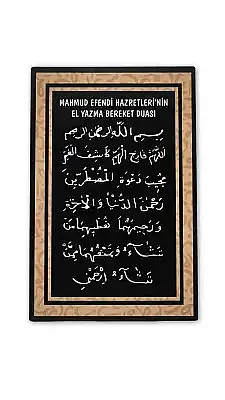 MAHMUD EFENDİ HAZRETLERİ'NİN
EL YAZMA BEREKET DUASI
بسم الله الرحمن الرحيم
اللهم فارج الهم كاشف الغم
مجيب دعوة المضطرين
رحمن الدنيا والآخرة
ورحيمهما تعطيهما من
تشاء وتمنعهما ممن
تشاء ارحمني